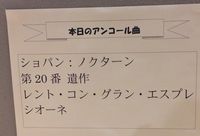 本日のアンコール曲
ショパン：ノクターン
第20番 遺作
レント・コン・グラン・エスプレ
シオーネ